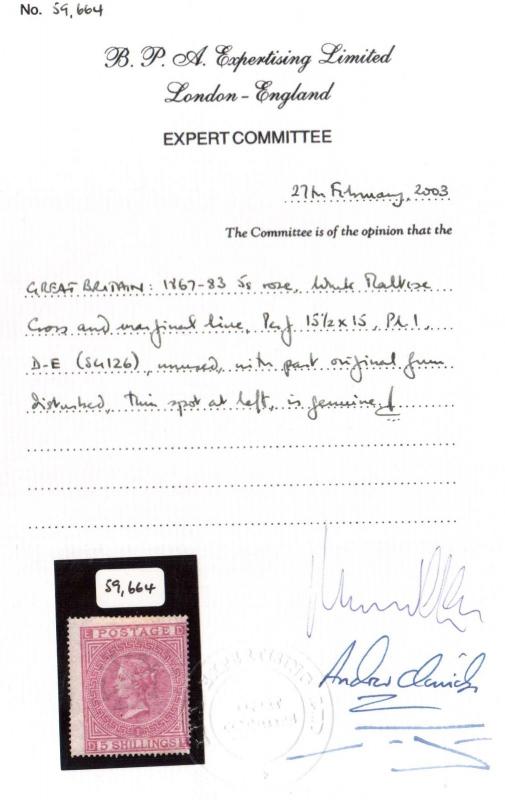 No. 59,664
B. P. A. Expertising Limited
London - England
EXPERT COMMITTEE
27th February, 2003
The Committee is of the opinion that the
GREAT BRITAIN: 1867-83 5s rose, Wmk Maltese
Cross and marginal line, Perf 15½ x 15, Pl. 1,
D-E (SG126), unused, with part original gum
disturbed, thin spot at left, is genuine.
59,664
E POSTAGE D
D 5 SHILLINGS E
Andrew